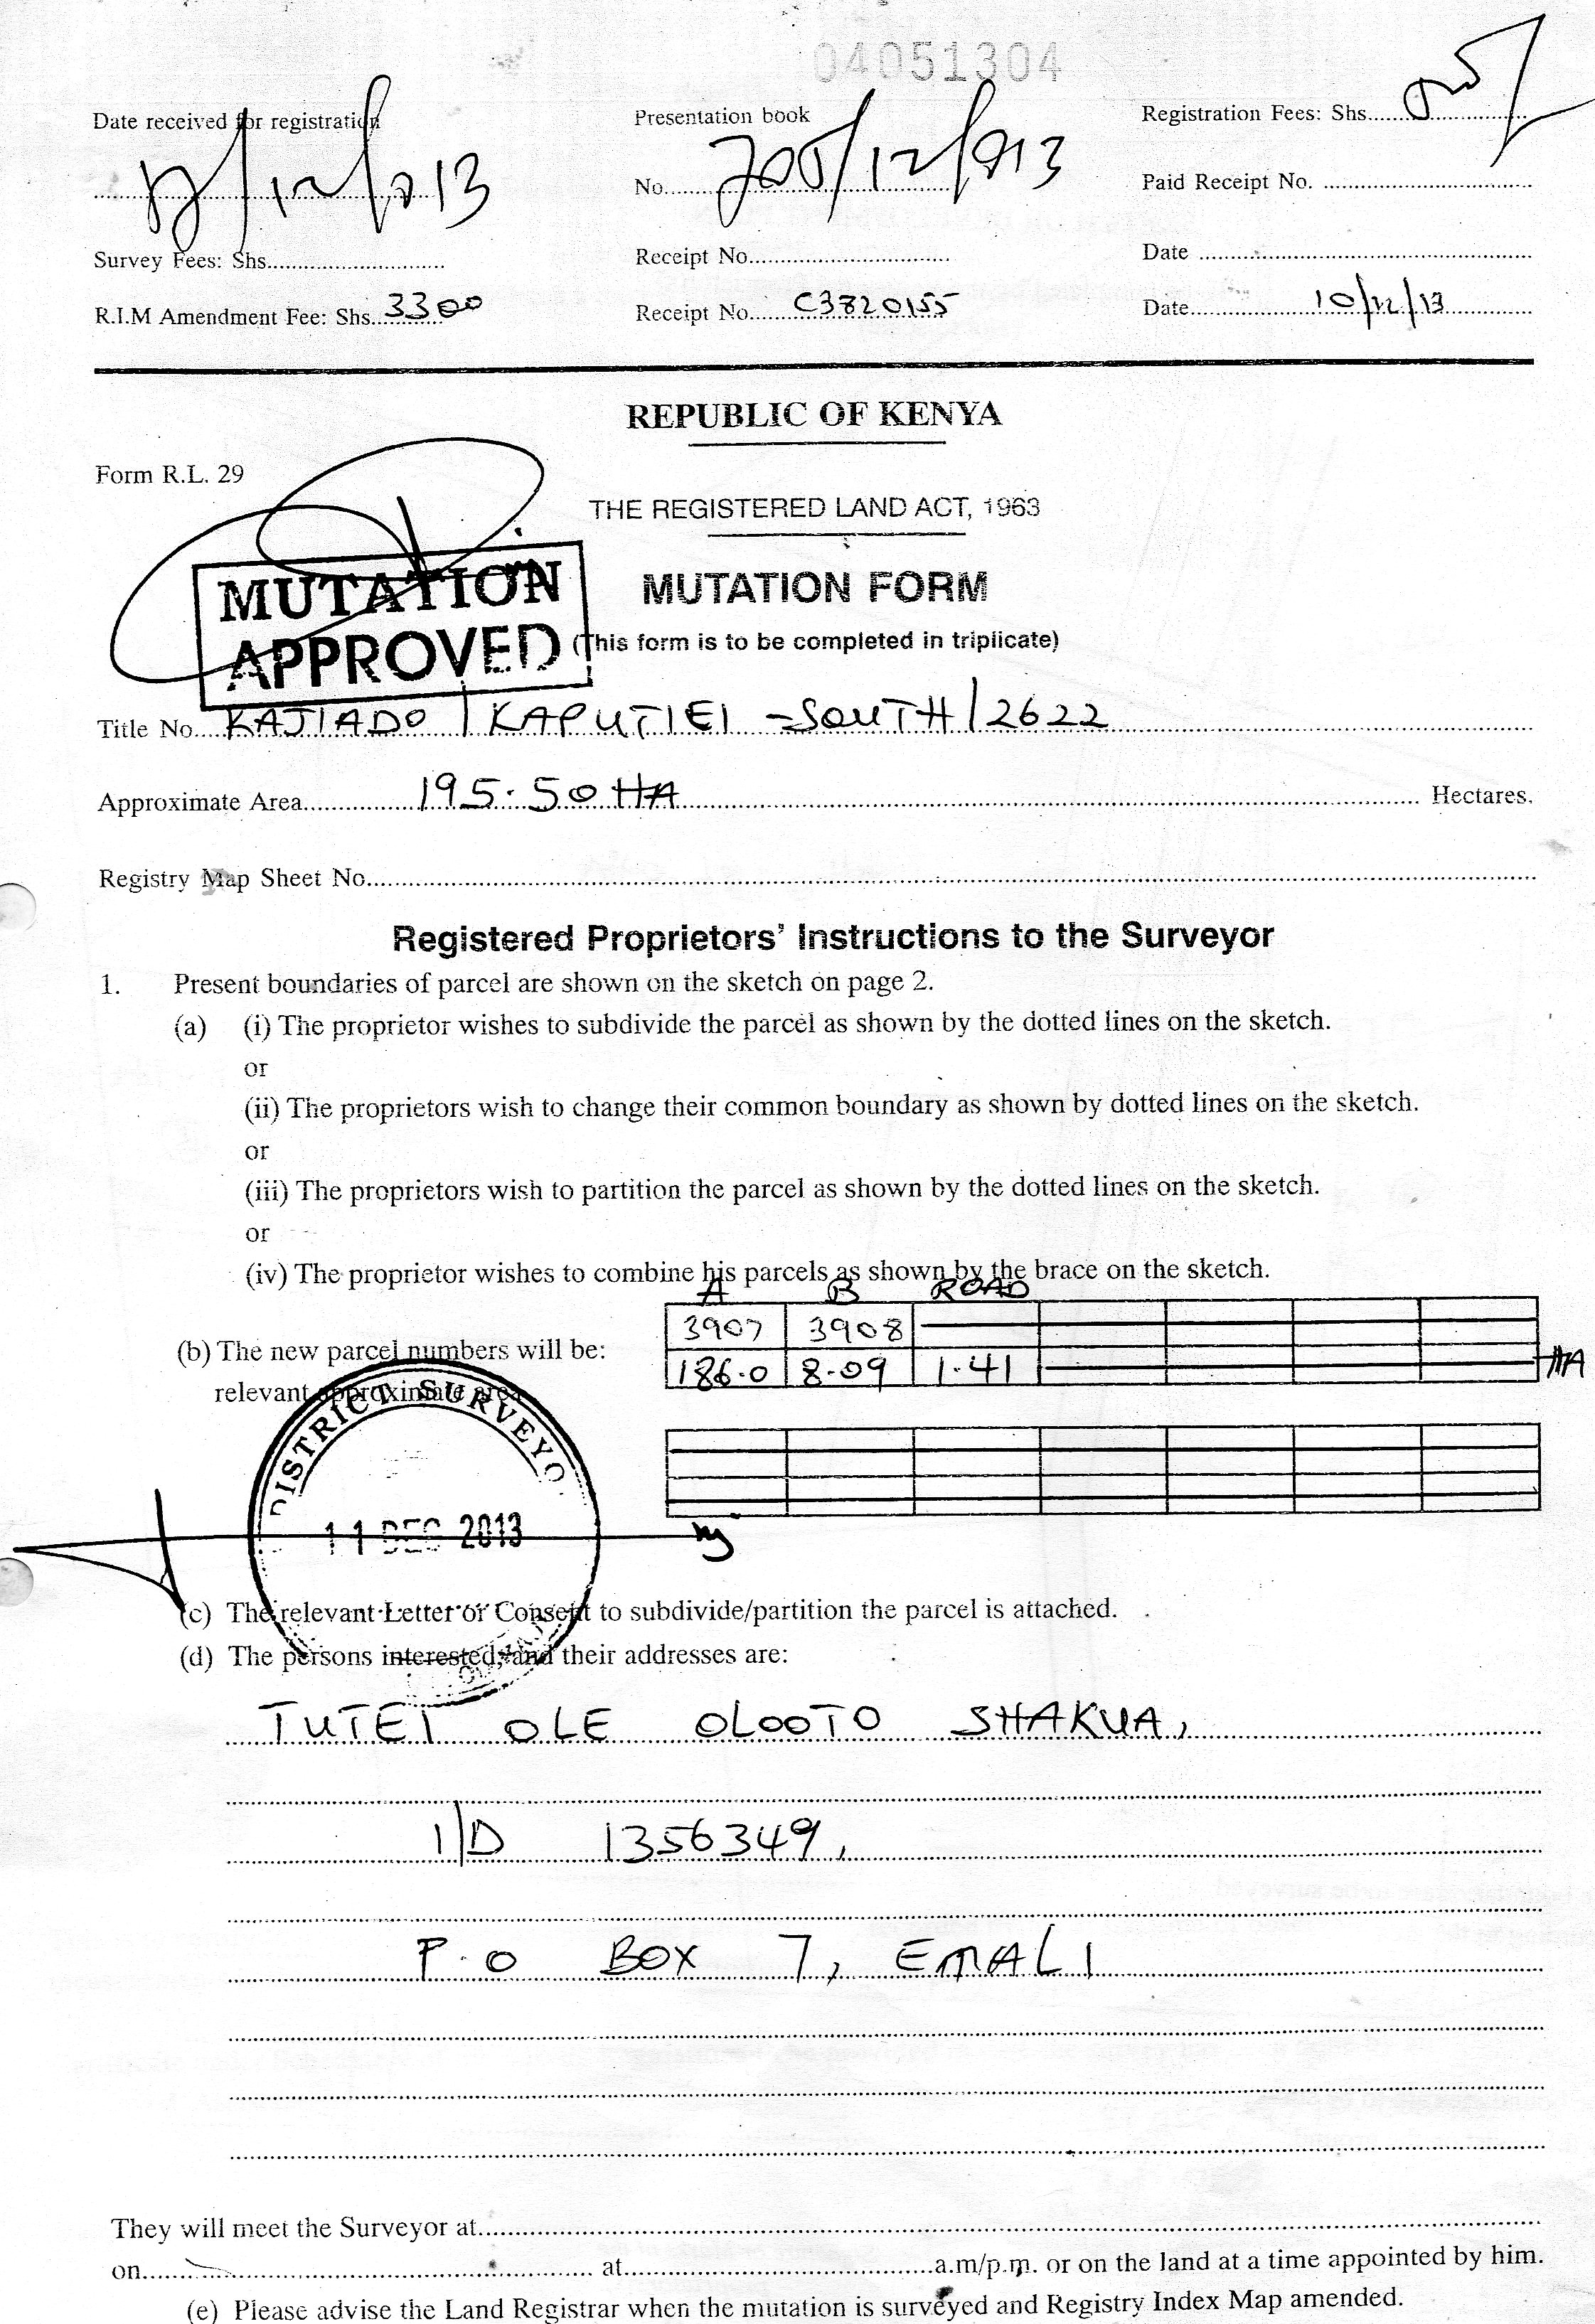 04051304
Date received for registration
Presentation book
Registration Fees: Shs.
/12/2013
No. 705/12/2013
Paid Receipt No.
Survey Fees: Shs.
Receipt No.
Date
R.I.M Amendment Fee: Shs. 3300
Receipt No. C3820155
Date 10/12/13
REPUBLIC OF KENYA
Form R.L. 29
THE REGISTERED LAND ACT, 1963
MUTATION FORM
MUTATION
APPROVED
(This form is to be completed in triplicate)
Title No. KAJIADO / KAPUTIEI - SOUTH / 2622
Approximate Area 195.50 HA Hectares.
Registry Map Sheet No.
Registered Proprietors' Instructions to the Surveyor
1. Present boundaries of parcel are shown on the sketch on page 2.
(a) (i) The proprietor wishes to subdivide the parcel as shown by the dotted lines on the sketch.
or
(ii) The proprietors wish to change their common boundary as shown by dotted lines on the sketch.
or
(iii) The proprietors wish to partition the parcel as shown by the dotted lines on the sketch.
or
(iv) The proprietor wishes to combine his parcels as shown by the brace on the sketch.
A B ROAD
(b) The new parcel numbers will be: 3907 3908
relevant approximate area 186.0 8.09 1.41 HA
DISTRICT SURVEYO
11 DEC 2013
(c) The relevant Letter of Consent to subdivide/partition the parcel is attached.
(d) The persons interested, and their addresses are:
TUTEI OLE OLOOTO SHAKUA,
I/D 1356349,
P.O BOX 7, EMALI
They will meet the Surveyor at
on at a.m/p.m. or on the land at a time appointed by him.
(e) Please advise the Land Registrar when the mutation is surveyed and Registry Index Map amended.